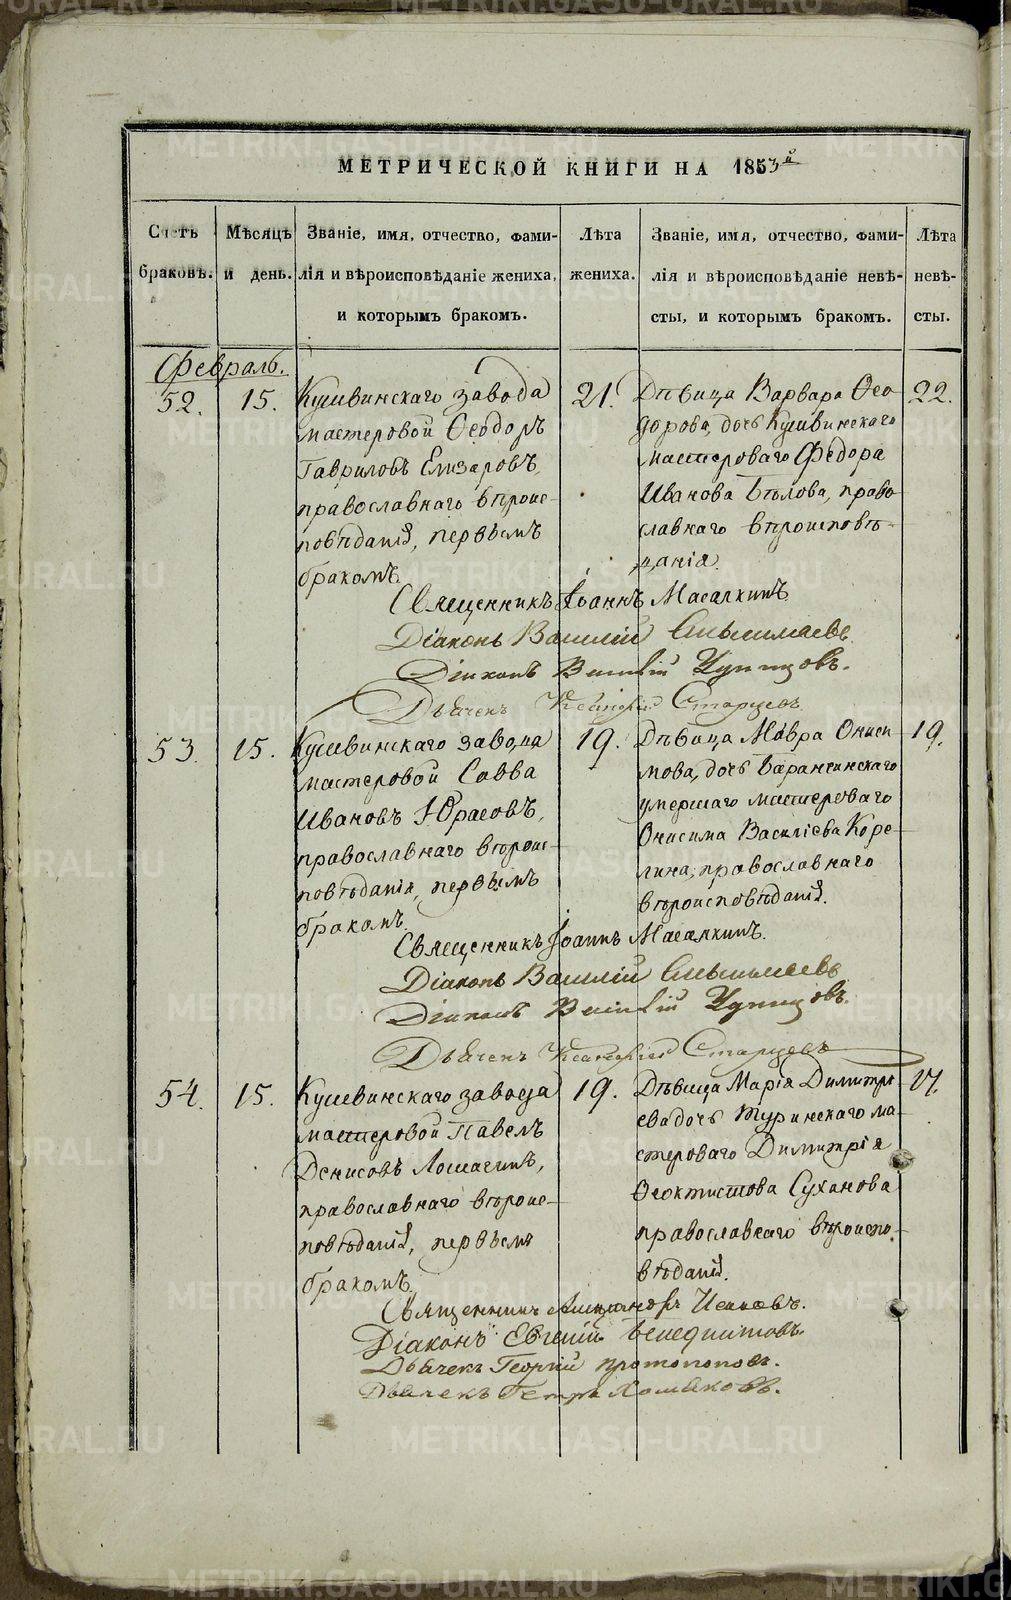 МЕТРИЧЕСКОЙ КНИГИ НА 1853й
Счетъ браковъ.
Мѣсяцъ и день.
Званіе, имя, отчество, фами-
лія и вѣроисповѣданіе жениха,
и которымъ бракомъ.
Лѣта жениха.
Званіе, имя, отчество, фами-
лія и вѣроисповѣданіе невѣ-
сты, и которымъ бракомъ.
Лѣта невѣ-
сты.
Февраль.
52. 15.
Кушвинскаго завода
мастеровой Ѳеодоръ
Гавриловъ Елизаровъ,
православнаго вѣроис-
повѣданія, первымъ
бракомъ
21.
Дѣвица Варвара Ѳео-
дорова, дочь Кушвинскаго
мастероваго Федора
Иванова Бѣлова, право-
славнаго вѣроисповѣ-
данія.
22.
Священникъ Іоаннъ Масалкинъ
Діаконъ Василій
Діаконъ Василій Чупинцовъ.
Дьячекъ Старцевъ
53. 15.
Кушвинскаго завода
мастеровой Савва
Ивановъ Юрасовъ,
православнаго вѣроис-
повѣданія, первымъ
бракомъ
19.
Дѣвица Мавра Ониси-
мова, дочь Баранчинскаго
умершаго мастероваго
Онисима Василіева Коре-
лина, православнаго
вѣроисповѣданія.
19.
Священникъ Іоаннъ Масалкинъ.
Діаконъ Василій
Діаконъ Василій Чупинцовъ.
Дьячекъ Старцевъ
54. 15.
Кушвинскаго завода
мастеровой Павелъ
Денисовъ Лошагинъ,
православнаго вѣроис-
повѣданія, первымъ
бракомъ
19.
Дѣвица Марія Димитрі-
ева дочь Туринскаго ма-
стероваго Димитрія
Ѳеоктистова Суханова
православнаго вѣроиспо-
вѣданія.
17.
Священникъ Александръ
Діаконъ Евгеній Бенедиктовъ.
Дьячекъ Георгій Протопоповъ.
Дьячекъ Петръ Хомяковъ.
METRIKI.GASO-URAL.RU